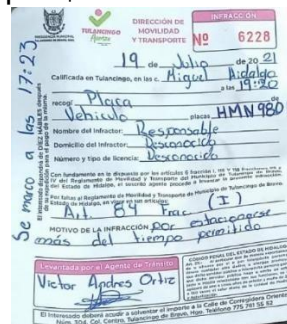 PRESIDENCIA MUNICIPAL
TULANCINGO
Avanza
DIRECCIÓN DE
MOVILIDAD
Y TRANSPORTE
INFRACCIÓN
Nº 6228
19 de Julio de 2021
Calificada en Tulancingo, en las c. Miguel Hidalgo
a las 19:20
recogí Placa
Vehiculo placas HMN980
Nombre del Infractor: Responsable
Domicilio del Infractor: Desconocido
Número y tipo de licencia: Desconocido
Con fundamento en lo dispuesto por los artículos
del Reglamento de Movilidad y Transporte del Municipio de Tulancingo de Bravo,
del Estado de Hidalgo, el suscrito agente procede a
Por faltas al Reglamento de Movilidad y Transporte de Municipio de Tulancingo de Bravo,
Estado de Hidalgo, en sus artículos:
Art 84 Frac. (I)
MOTIVO DE LA INFRACCIÓN Por estacionarse
más del tiempo permitido
Levantada por el Agente de Tránsito
Victor Andres Ortiz
CÓDIGO PENAL DEL ESTADO DE HIDALGO
El interesado deberá acudir a solventar el importe a la Calle de Corregidora Oriente
Núm. 304, Col. Centro, Tulancingo de Bravo, Hgo. Teléfono 775 761 55 92
Se marco a las 17:23
El interesado dispondrá de DIEZ HÁBILES después